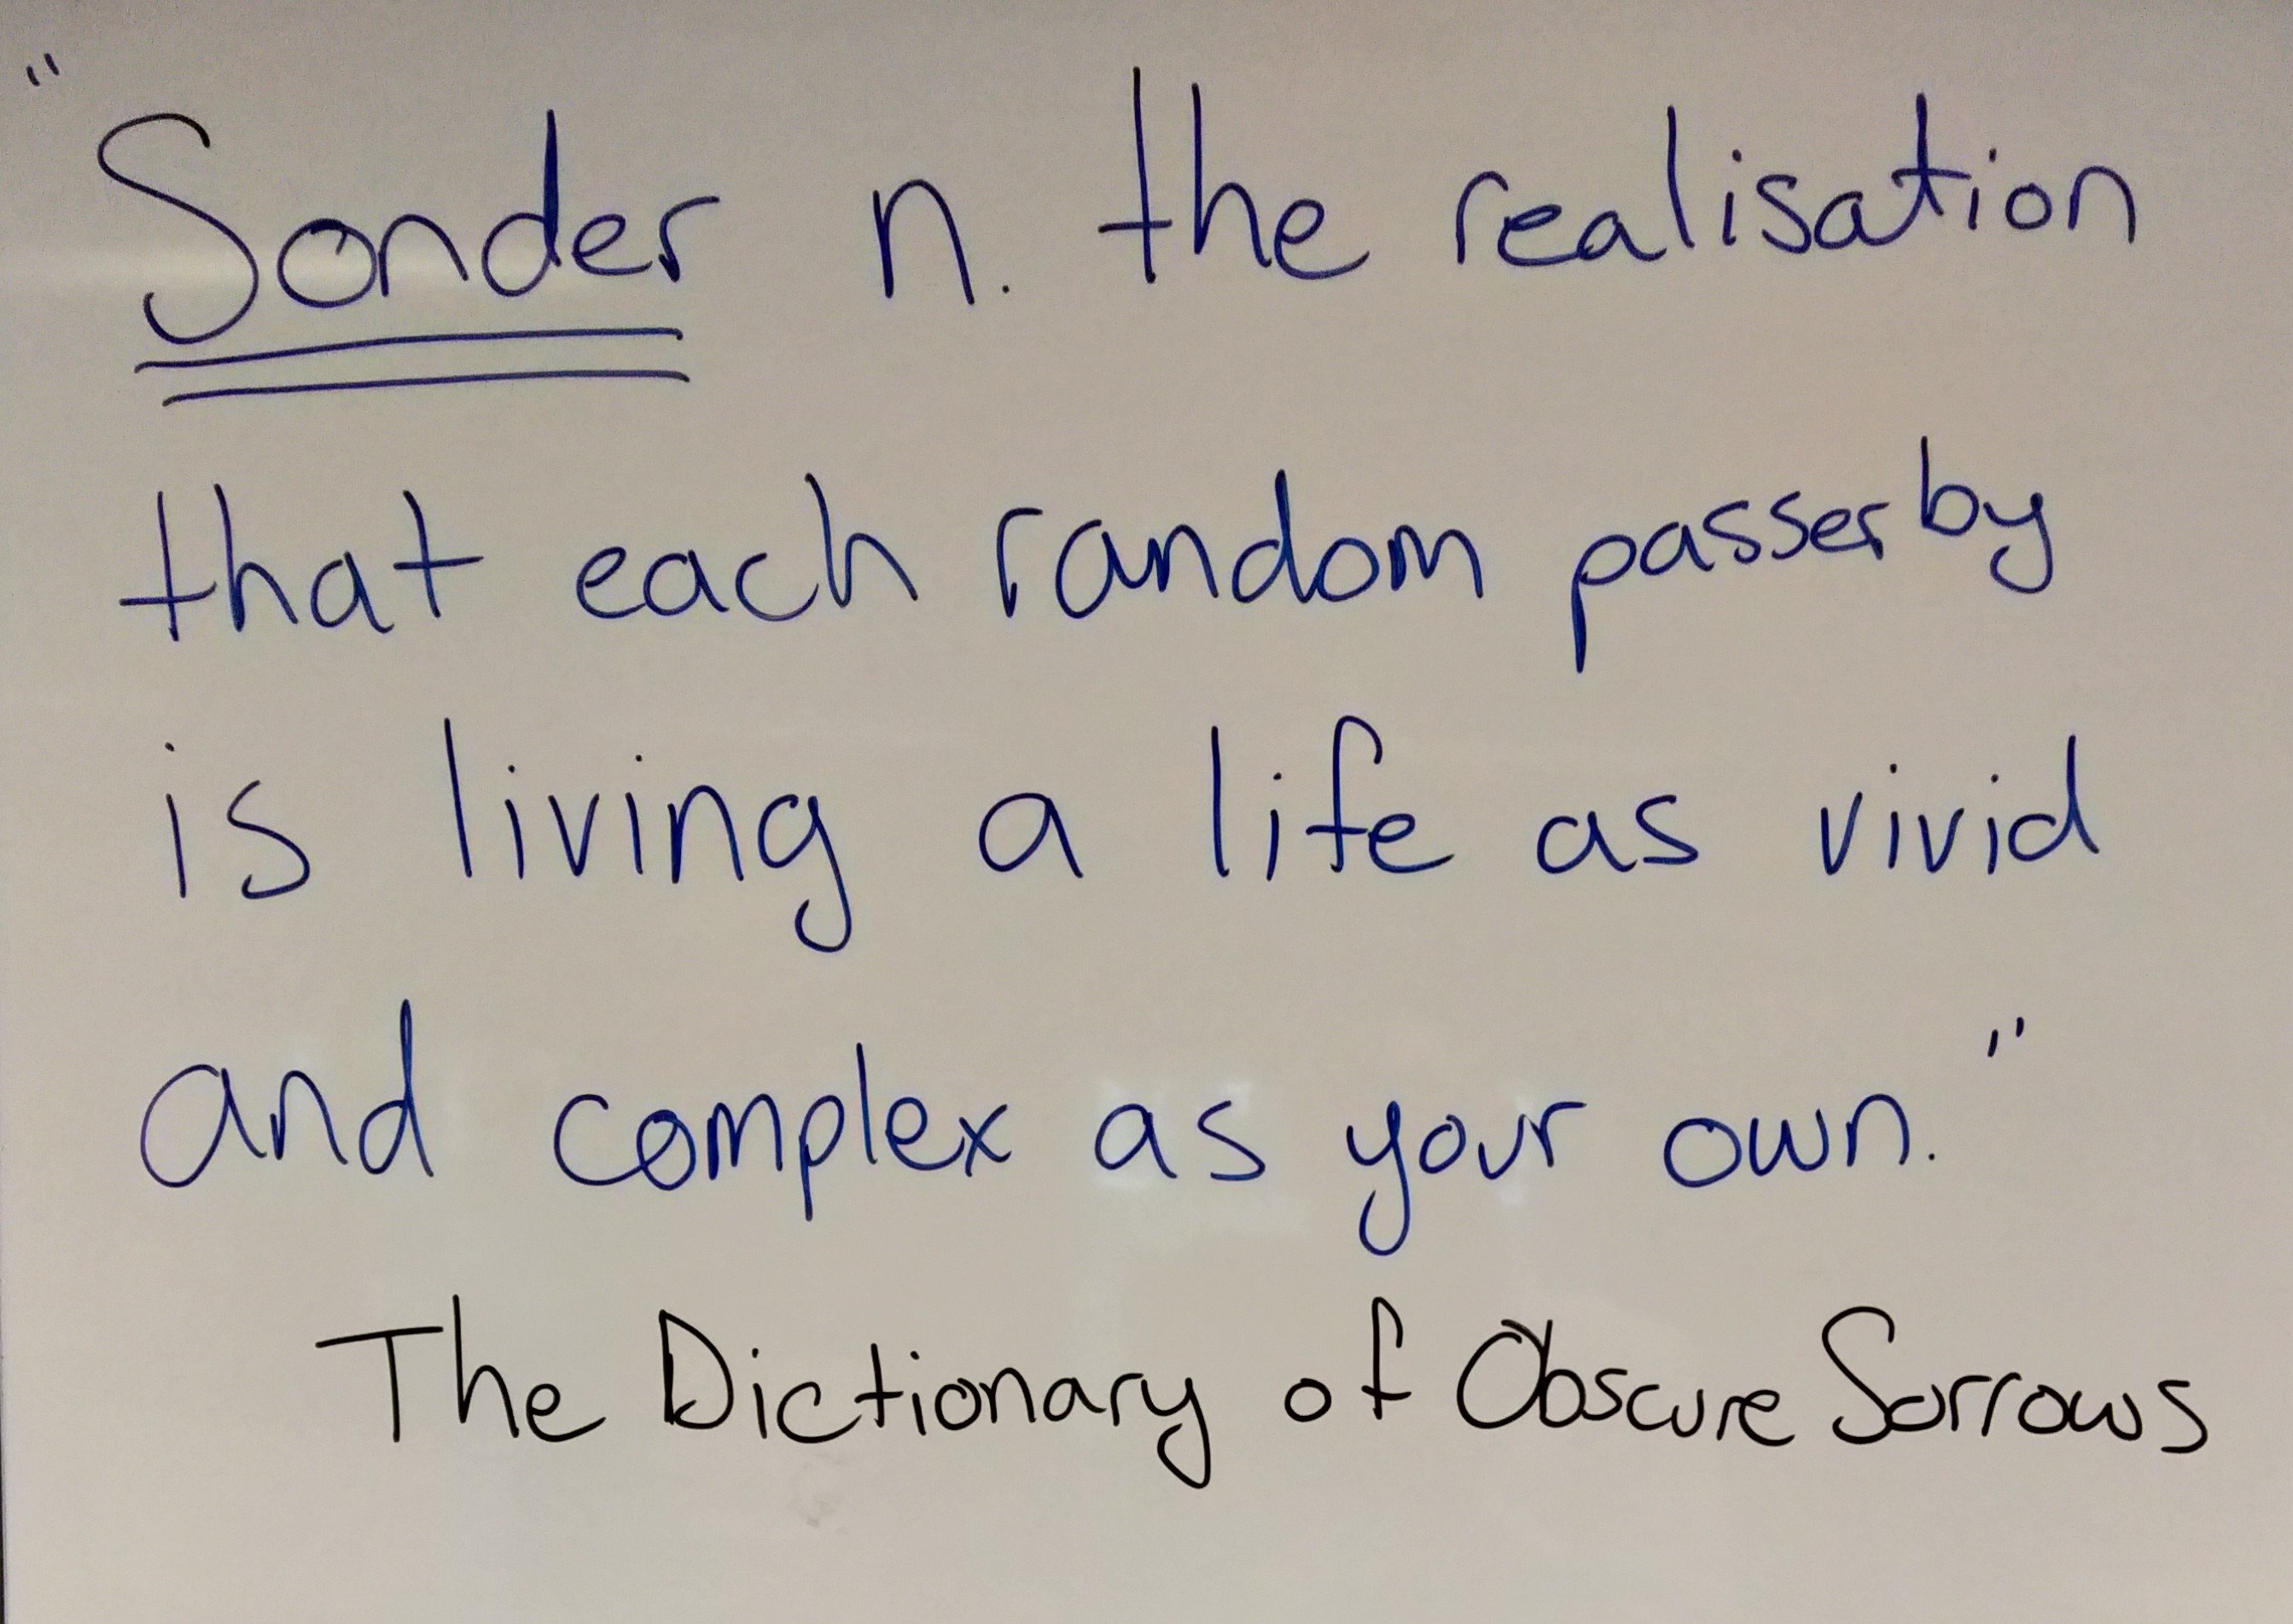 "Sonder n. the realisation
that each random passerby
is living a life as vivid
and complex as your own."
The Dictionary of Obscure Sorrows